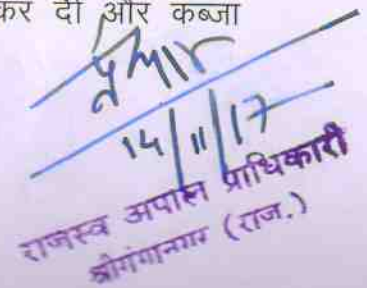 कर दी और कब्जा
14/11/17
राजस्व अपील प्राधिकारी
श्रीगंगानगर (राज.)